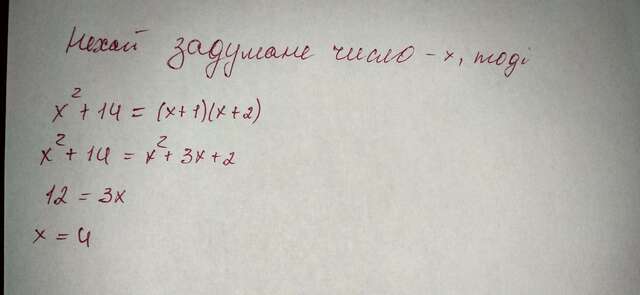 Нехай задумане число - x, тоді
x² + 14 = (x+1)(x+2)
x² + 14 = x² + 3x + 2
12 = 3x
x = 4